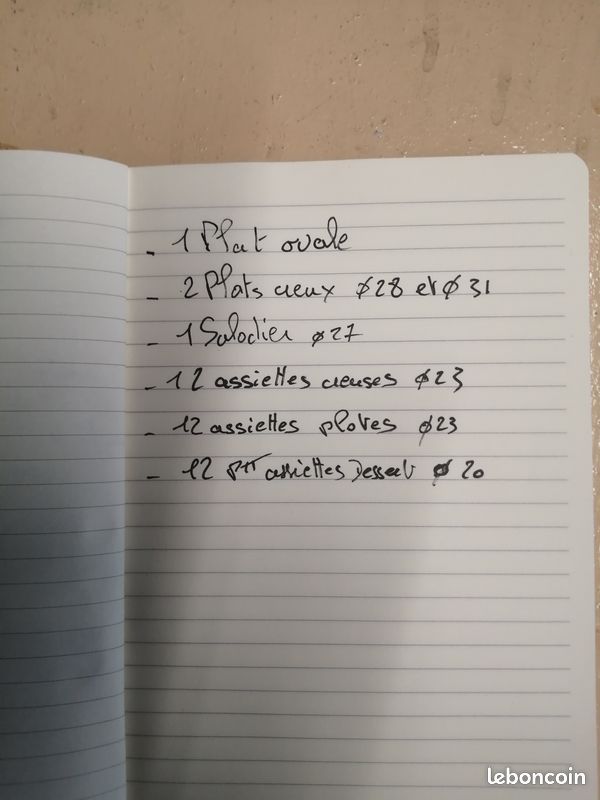 - 1 Plat ovale
- 2 Plats creux ø28 et ø 31
- 1 Saladier ø27
- 12 assiettes creuses ø23
- 12 assiettes plates ø23
- 12 ptt assiettes Dessert ø 20
leboncoin